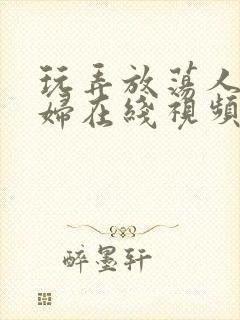 玩弄放蕩人
婦在綫視頻
醉墨轩